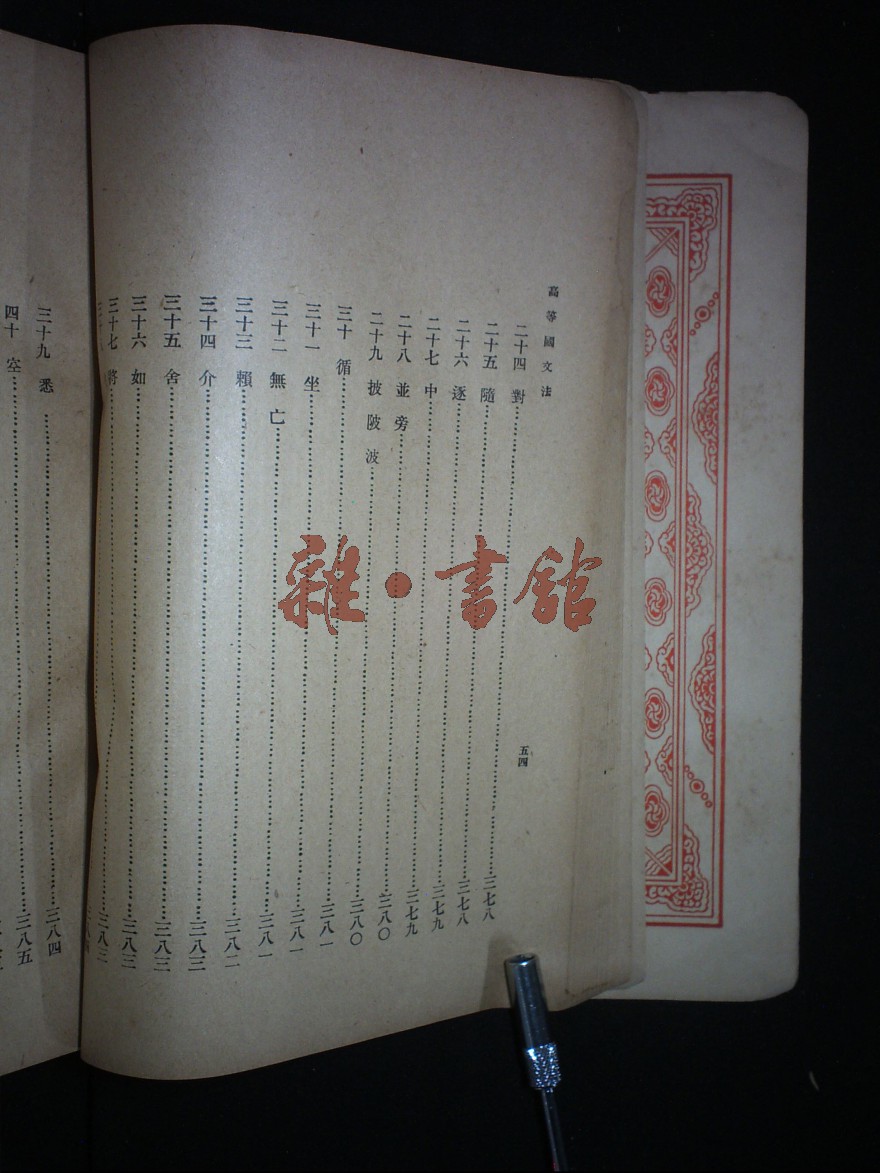 高等國文法
五四
二十四 對……三七八
二十五 隨……三七八
二十六 逐……三七九
二十七 中……三七九
二十八 並旁……三八〇
二十九 披陂波……三八〇
三十 循……三八一
三十一 坐……三八一
三十二 無亡……三八一
三十三 賴……三八二
三十四 介……三八三
三十五 舍……三八三
三十六 如……三八三
三十七 將……三八三
三十九 悉……三八四
四十 空……三八五
雜·書館